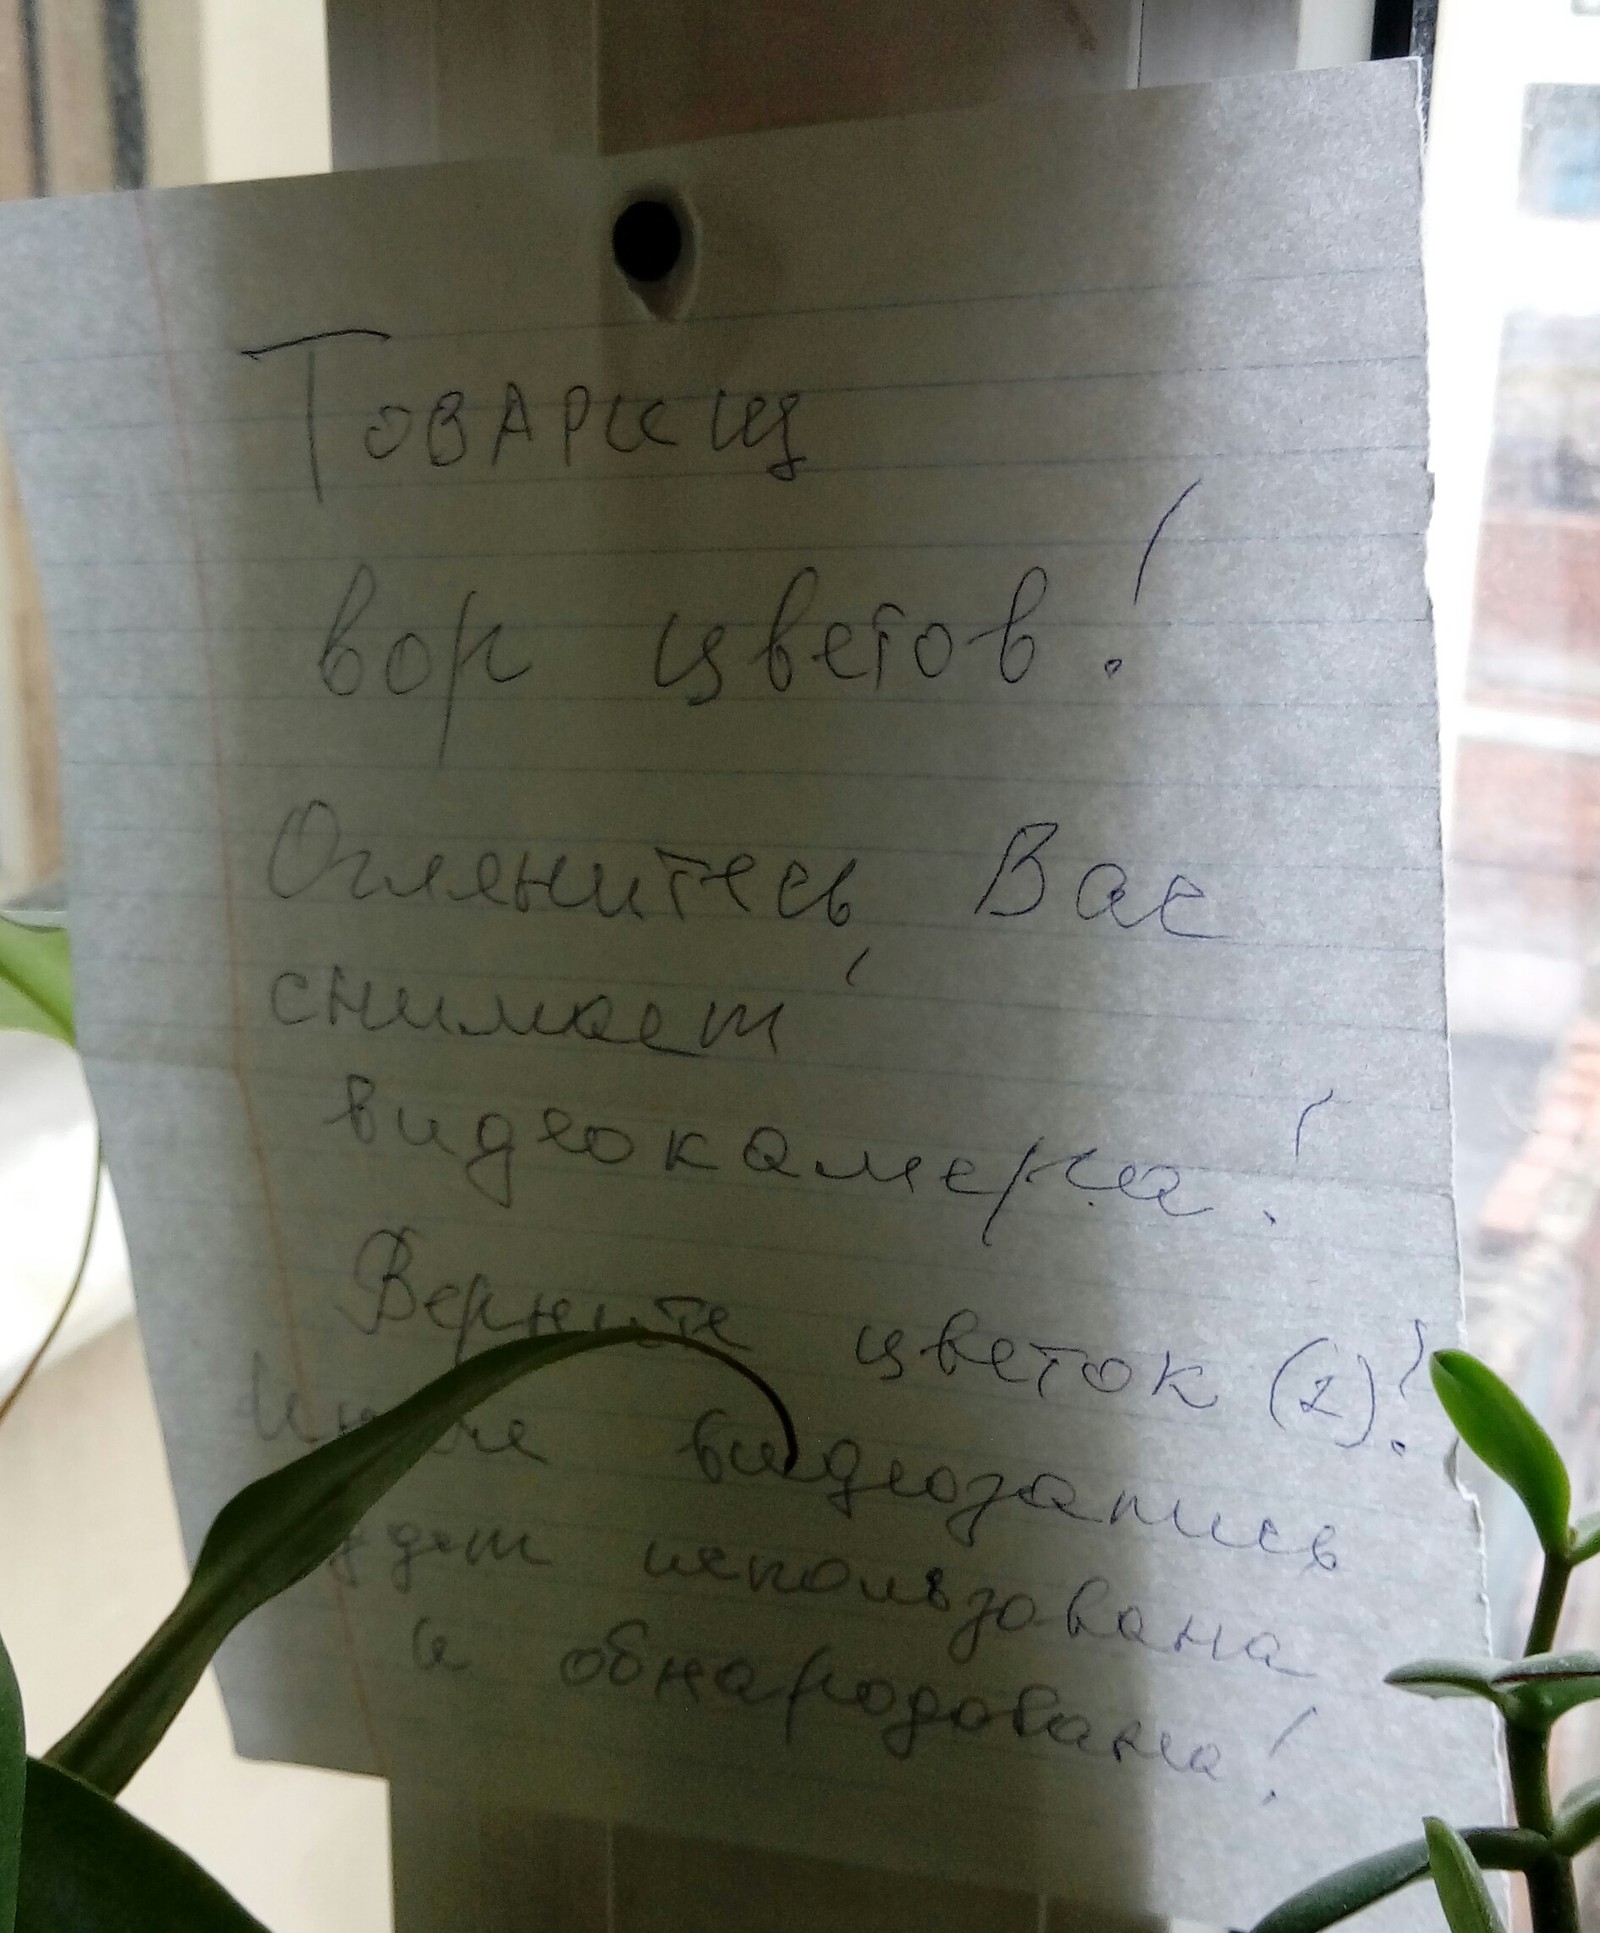 Товарищ
вор цветов!
Оглянитесь, Вас
снимает
видеокамера!
Верните цветок (2)!
Иначе видеозапись
будет использована
и обнародована!